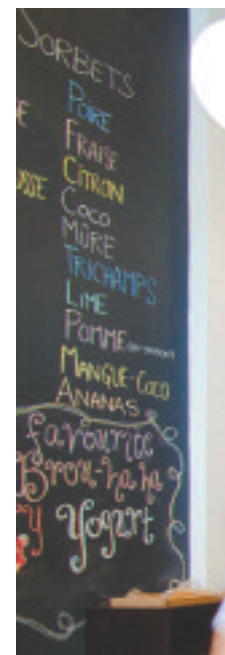 SORBETS
POIRE
FRAISE
CITRON
COCO
MÛRE
TRICHAMPS
LIME
POMME
MANGUE-COCO
ANANAS
favourite
Brou-ha ha
Yogurt